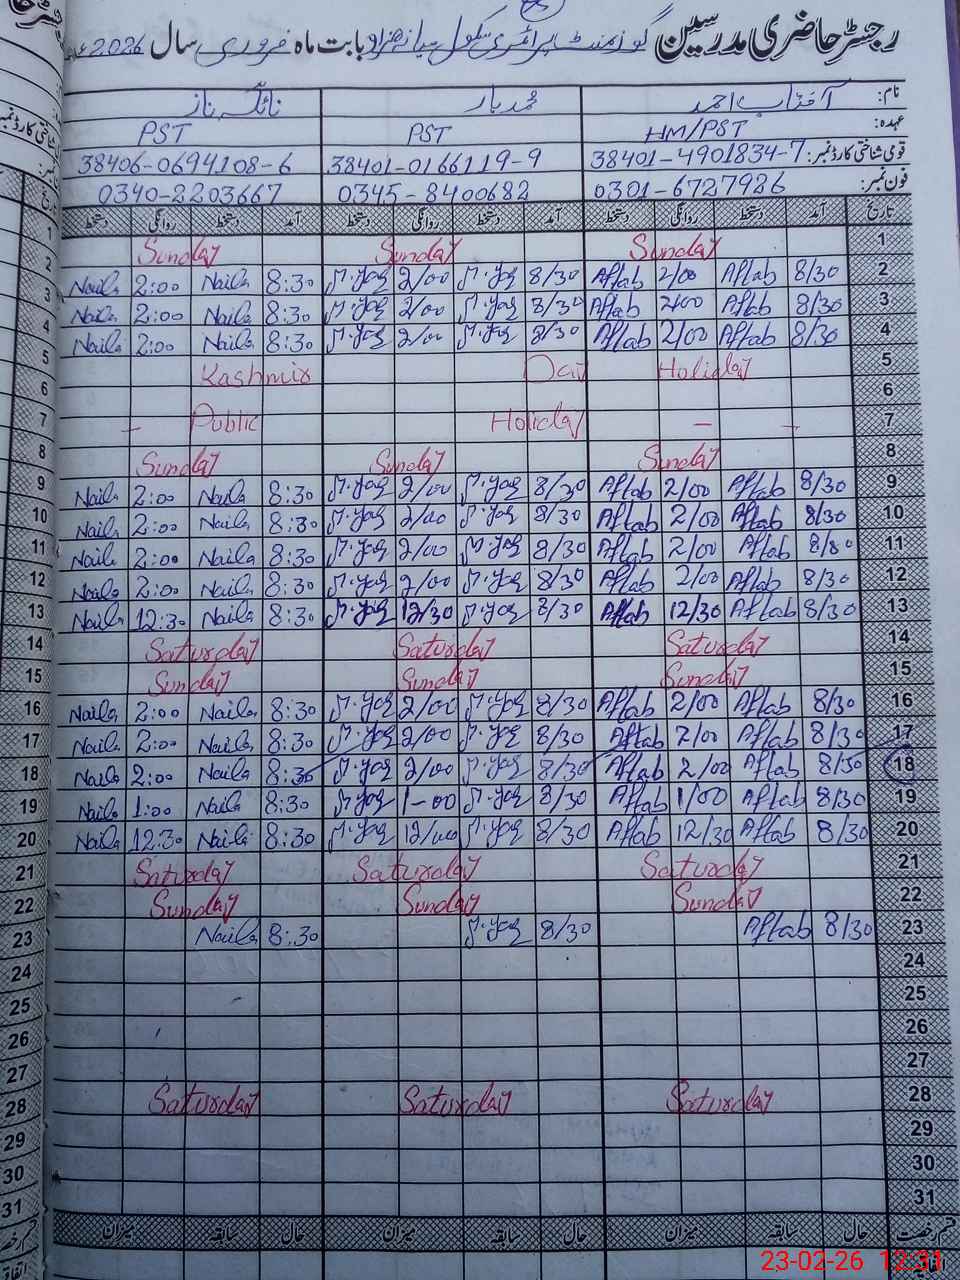 رجسٹر حاضری مدرسین گورنمنٹ پرائمری سکول بابت ماہ فروری سال 2026ء
نام: آفتاب احمد محمد یار نائلہ ناز
عہدہ: HM/PST PST PST
قومی شناختی کارڈ نمبر: 38401-4901834-7 38401-0166119-9 38406-0694108-6
فون نمبر: 0301-6727926 0345-8400682 0340-2203667
تاریخ آمد دستخط روانگی دستخط آمد دستخط روانگی دستخط آمد دستخط روانگی دستخط
1 Sunday Sunday Sunday
2 8/30 Aftab 2/00 Aftab 8/30 M.Yar 2/00 M.Yar 8:30 Naila 2:00 Naila
3 8/30 Aftab 2/00 Aftab 8/30 M.Yar 2/00 M.Yar 8:30 Naila 2:00 Naila
4 8/30 Aftab 2/00 Aftab 8/30 M.Yar 2/00 M.Yar 8:30 Naila 2:00 Naila
5 Kashmir Day Holiday
6
7 - Public Holiday - -
8 Sunday Sunday Sunday
9 8/30 Aftab 2/00 Aftab 8/30 M.Yar 2/00 M.Yar 8:30 Naila 2:00 Naila
10 8/30 Aftab 2/00 Aftab 8/30 M.Yar 2/00 M.Yar 8:30 Naila 2:00 Naila
11 8/30 Aftab 2/00 Aftab 8/30 M.Yar 2/00 M.Yar 8:30 Naila 2:00 Naila
12 8/30 Aftab 2/00 Aftab 8/30 M.Yar 2/00 M.Yar 8:30 Naila 2:00 Naila
13 8/30 Aftab 12/30 Aftab 8/30 M.Yar 12/30 M.Yar 8:30 Naila 12:30 Naila
14 Saturday Saturday Saturday
15 Sunday Sunday Sunday
16 8/30 Aftab 2/00 Aftab 8/30 M.Yar 2/00 M.Yar 8:30 Naila 2:00 Naila
17 8/30 Aftab 2/00 Aftab 8/30 M.Yar 2/00 M.Yar 8:30 Naila 2:00 Naila
18 8/30 Aftab 2/00 Aftab 8/30 M.Yar 2/00 M.Yar 8:30 Naila 2:00 Naila
19 8/30 Aftab 1/00 Aftab 8/30 M.Yar 1-00 M.Yar 8:30 Naila 1:00 Naila
20 8/30 Aftab 12/30 Aftab 8/30 M.Yar 12/00 M.Yar 8:30 Naila 12:30 Naila
21 Saturday Saturday Saturday
22 Sunday Sunday Sunday
23 8/30 Aftab 8/30 M.Yar 8:30 Naila
24
25
26
27
28 Saturday Saturday Saturday
29
30
31
قسم رخصت حال سابقہ میزان حال سابقہ میزان حال سابقہ میزان
23-02-26 12:31